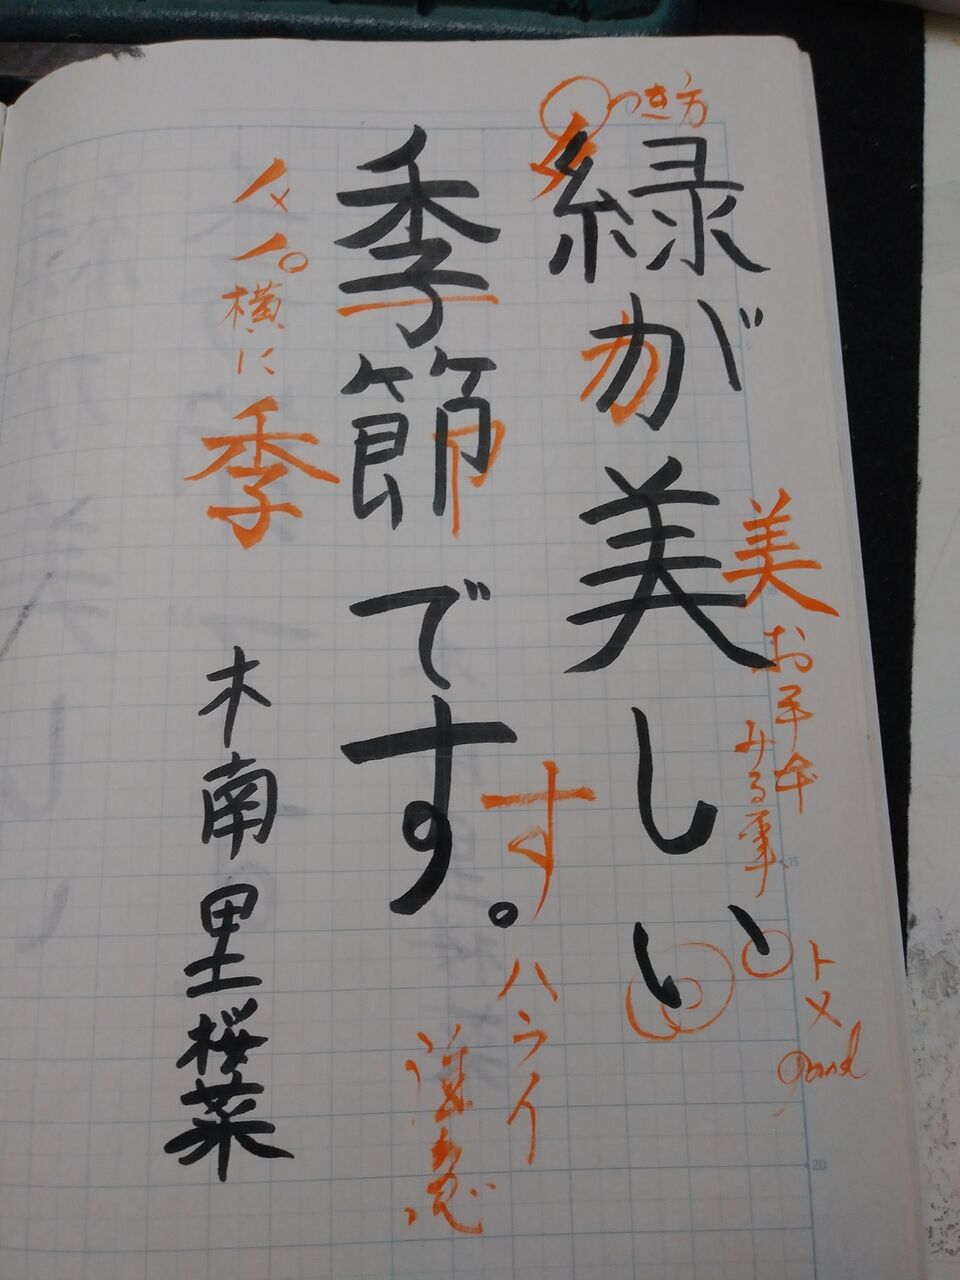 つき方
緑が美しい
美
お手本
みる事
トメ
good
季節です。
す
ハライ
注意
横に
季
木南里桜菜
15
20